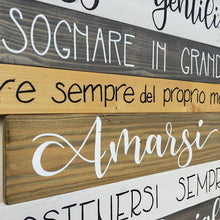 gentili
SOGNARE IN GRAND
re sempre del proprio m
Amarsi
OSTENERSI SEMPR